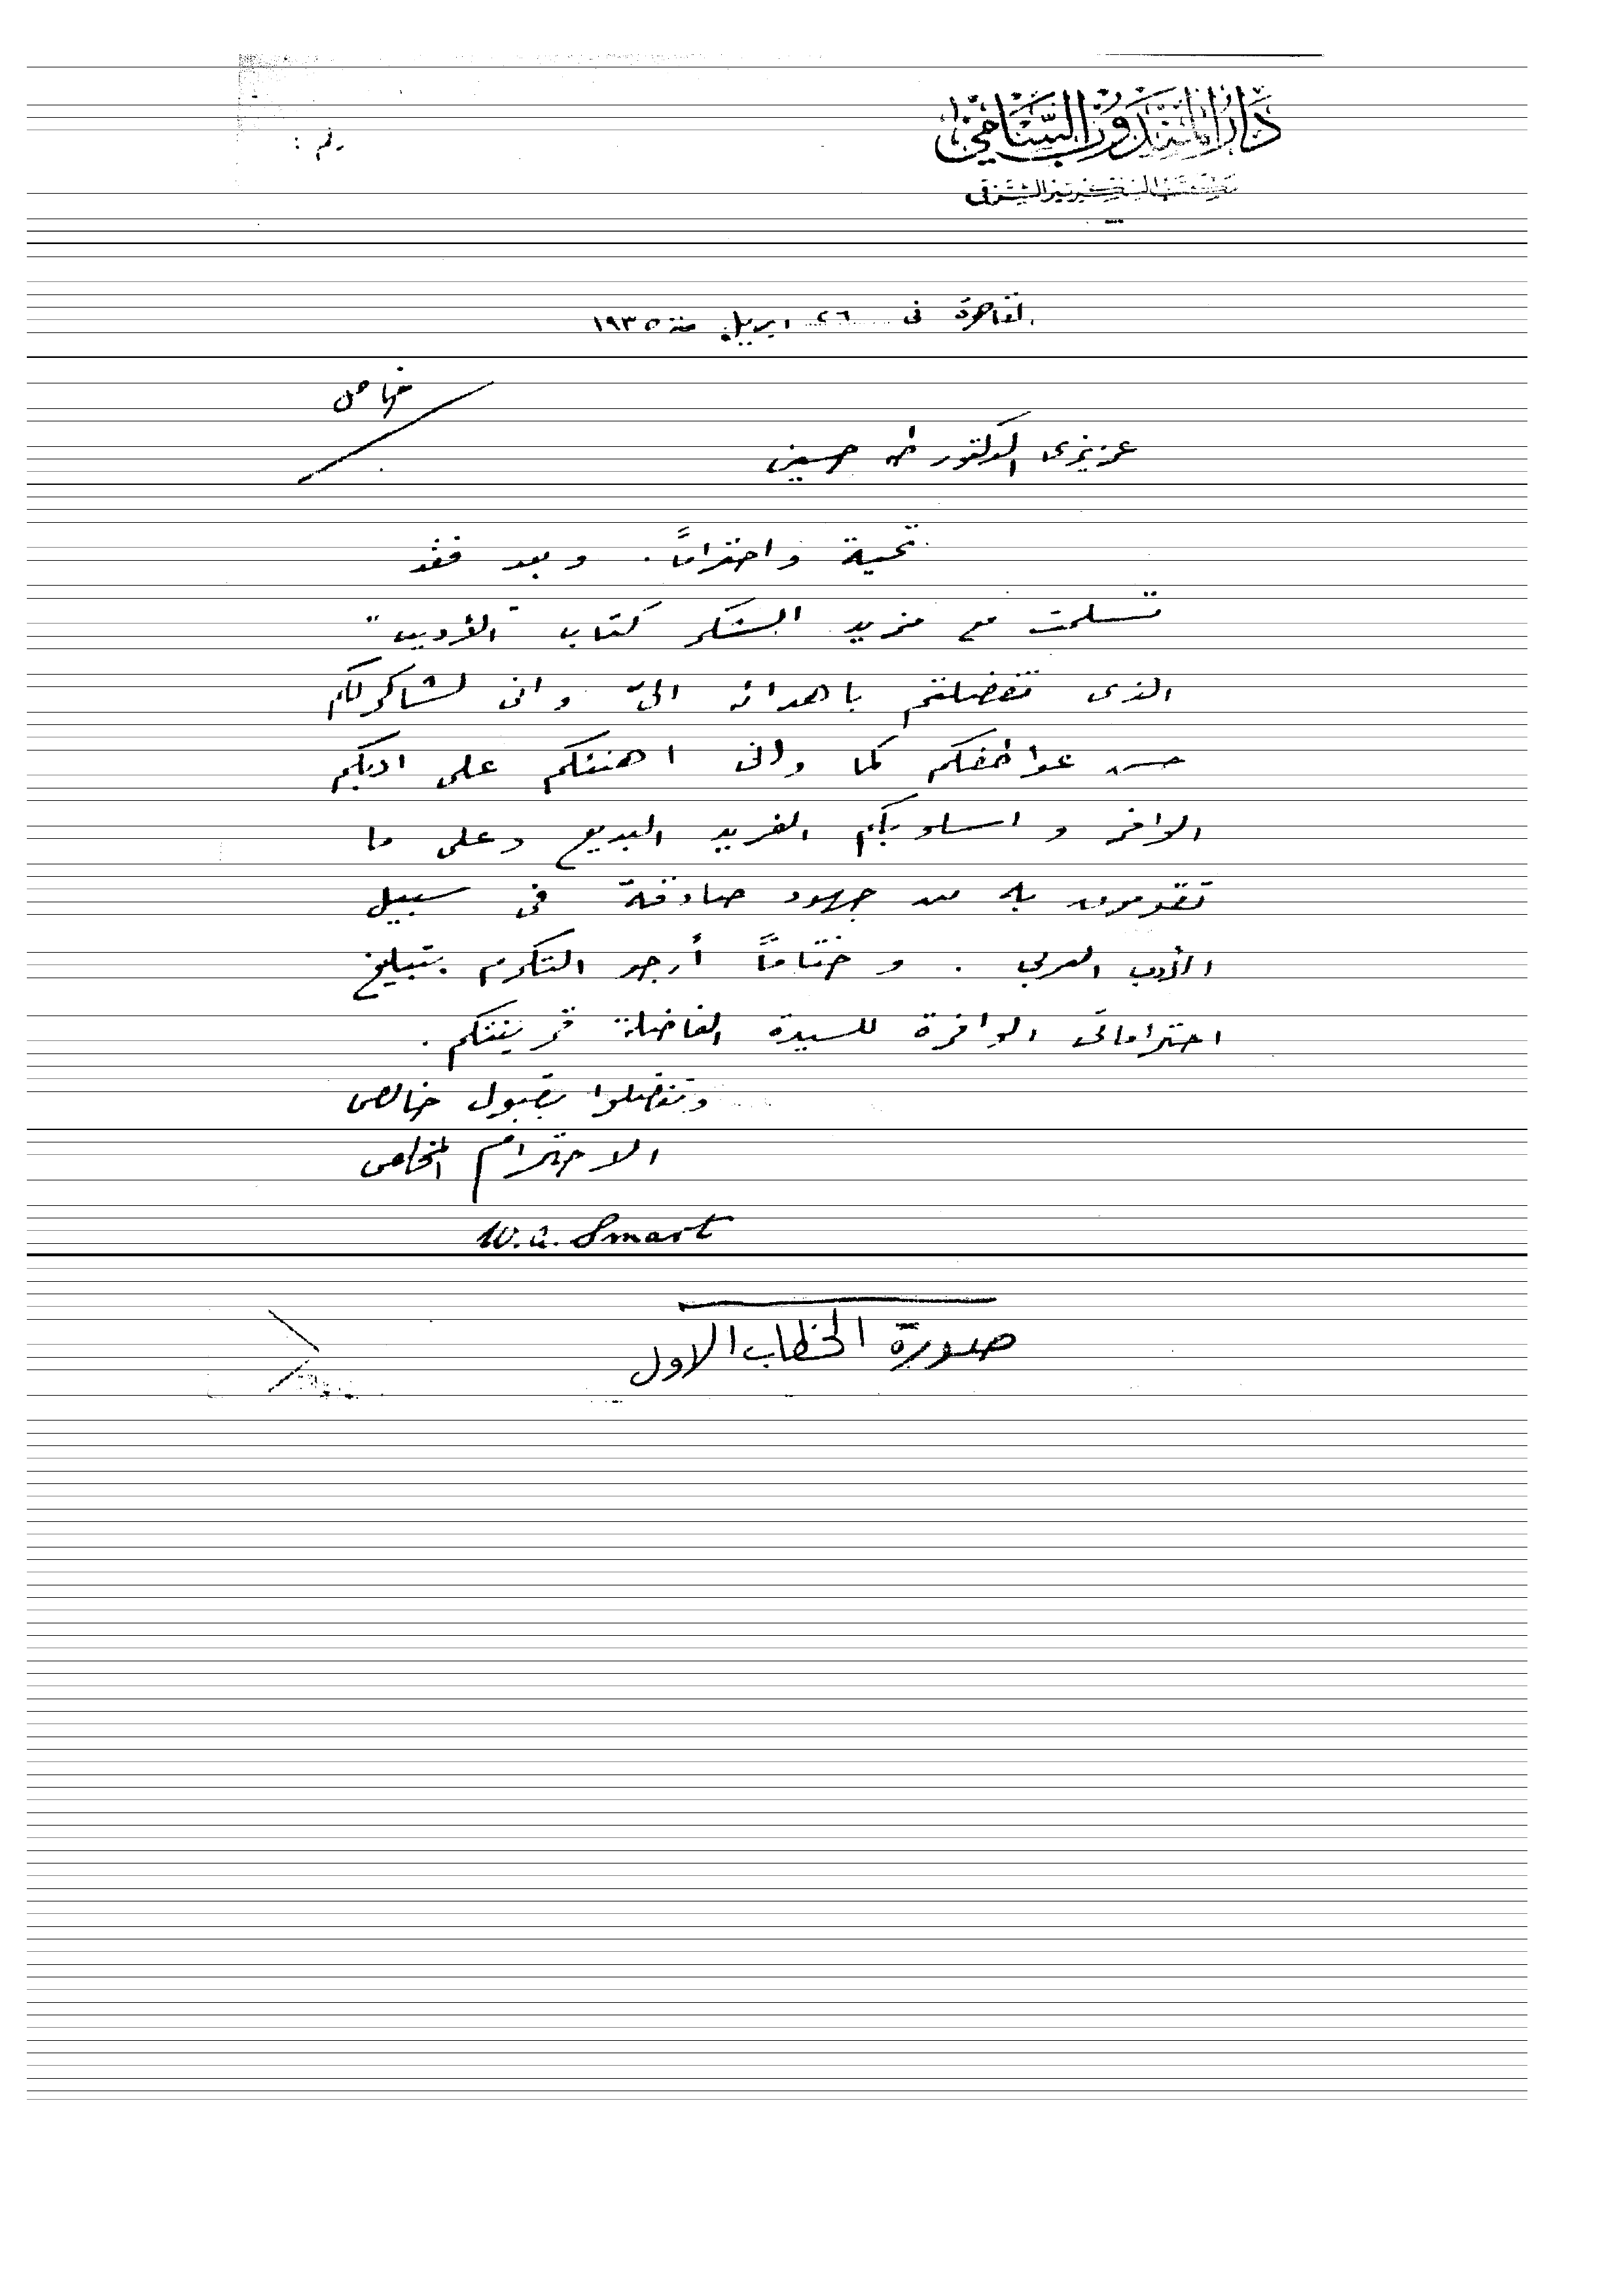 دار المندوب السامي
رقم :
القاهرة فى ٢٦ ابريل سنة ١٩٣٥
خاص
عزيزى الدكتور طه حسين
تحية واحتراماً . وبعد فقد
تسلمت مع مزيد الشكر كتاب "الأديب"
الذى تفضلتم باهدائه الىّ وانى لشاكر لكم
حسن عواطفكم كما وانى اهنئكم على ادبكم
الوافر واسلوبكم الفريد البديع وعلى ما
تقومون به من جهود صادقة فى سبيل
الأدب العربى . وختاماً أرجو التكرم بتبليغ
احتراماتى الوافرة للسيدة الفاضلة قرينتكم .
وتفضلوا بقبول خالص
الاحترام
W. A. Smart
صورة الخطاب الاول